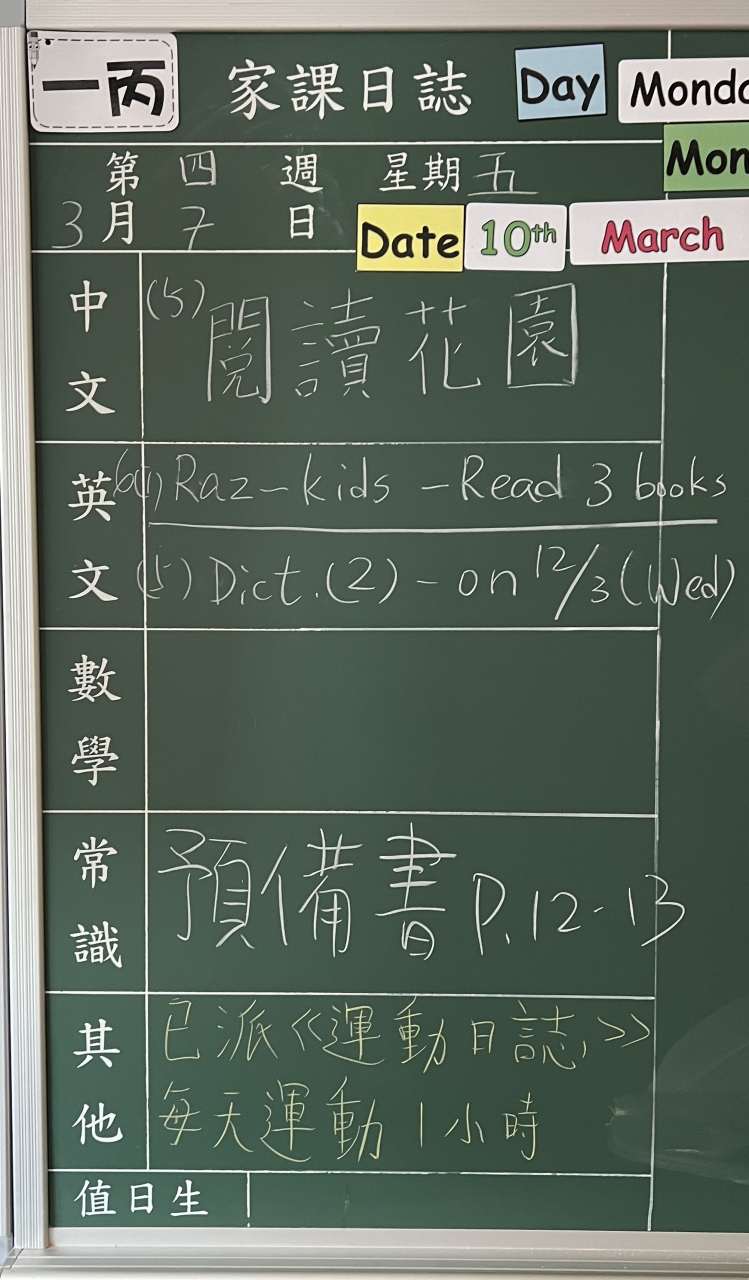 一丙 家課日誌 Day Monda
第 四 週 星期五 Mon
3月 7 日 Date 10th March
中文 (5) 閱讀花園
英文 Raz-kids - Read 3 books
(5) Dict. (2) - on 12/3 (Wed)
數學
常識 預備書 P.12-13
其他 已派《運動日誌》
每天運動1小時
值日生